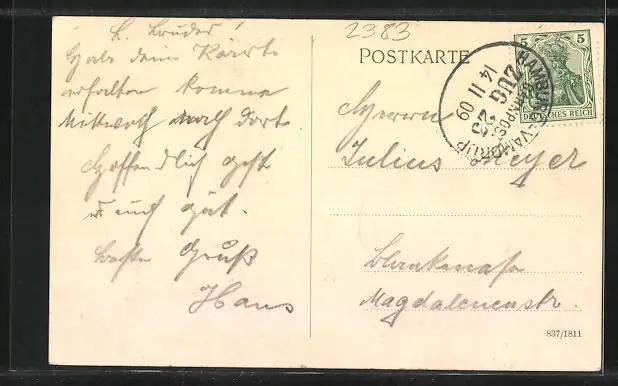 L. Bruder!
Habe deine Karte
erhalten komme
Mittwoch nach dort.
Hoffendlich geht
es euch gut.
Besten Gruß
Hans
2383
POSTKARTE
HAMBURG-VAMDRUP
BAHNPOST
ZUG
14 11 09
5 5
DEUTSCHES REICH
Herrn
Julius Meyer
Blankenese
Magdalenenstr.
837/1811